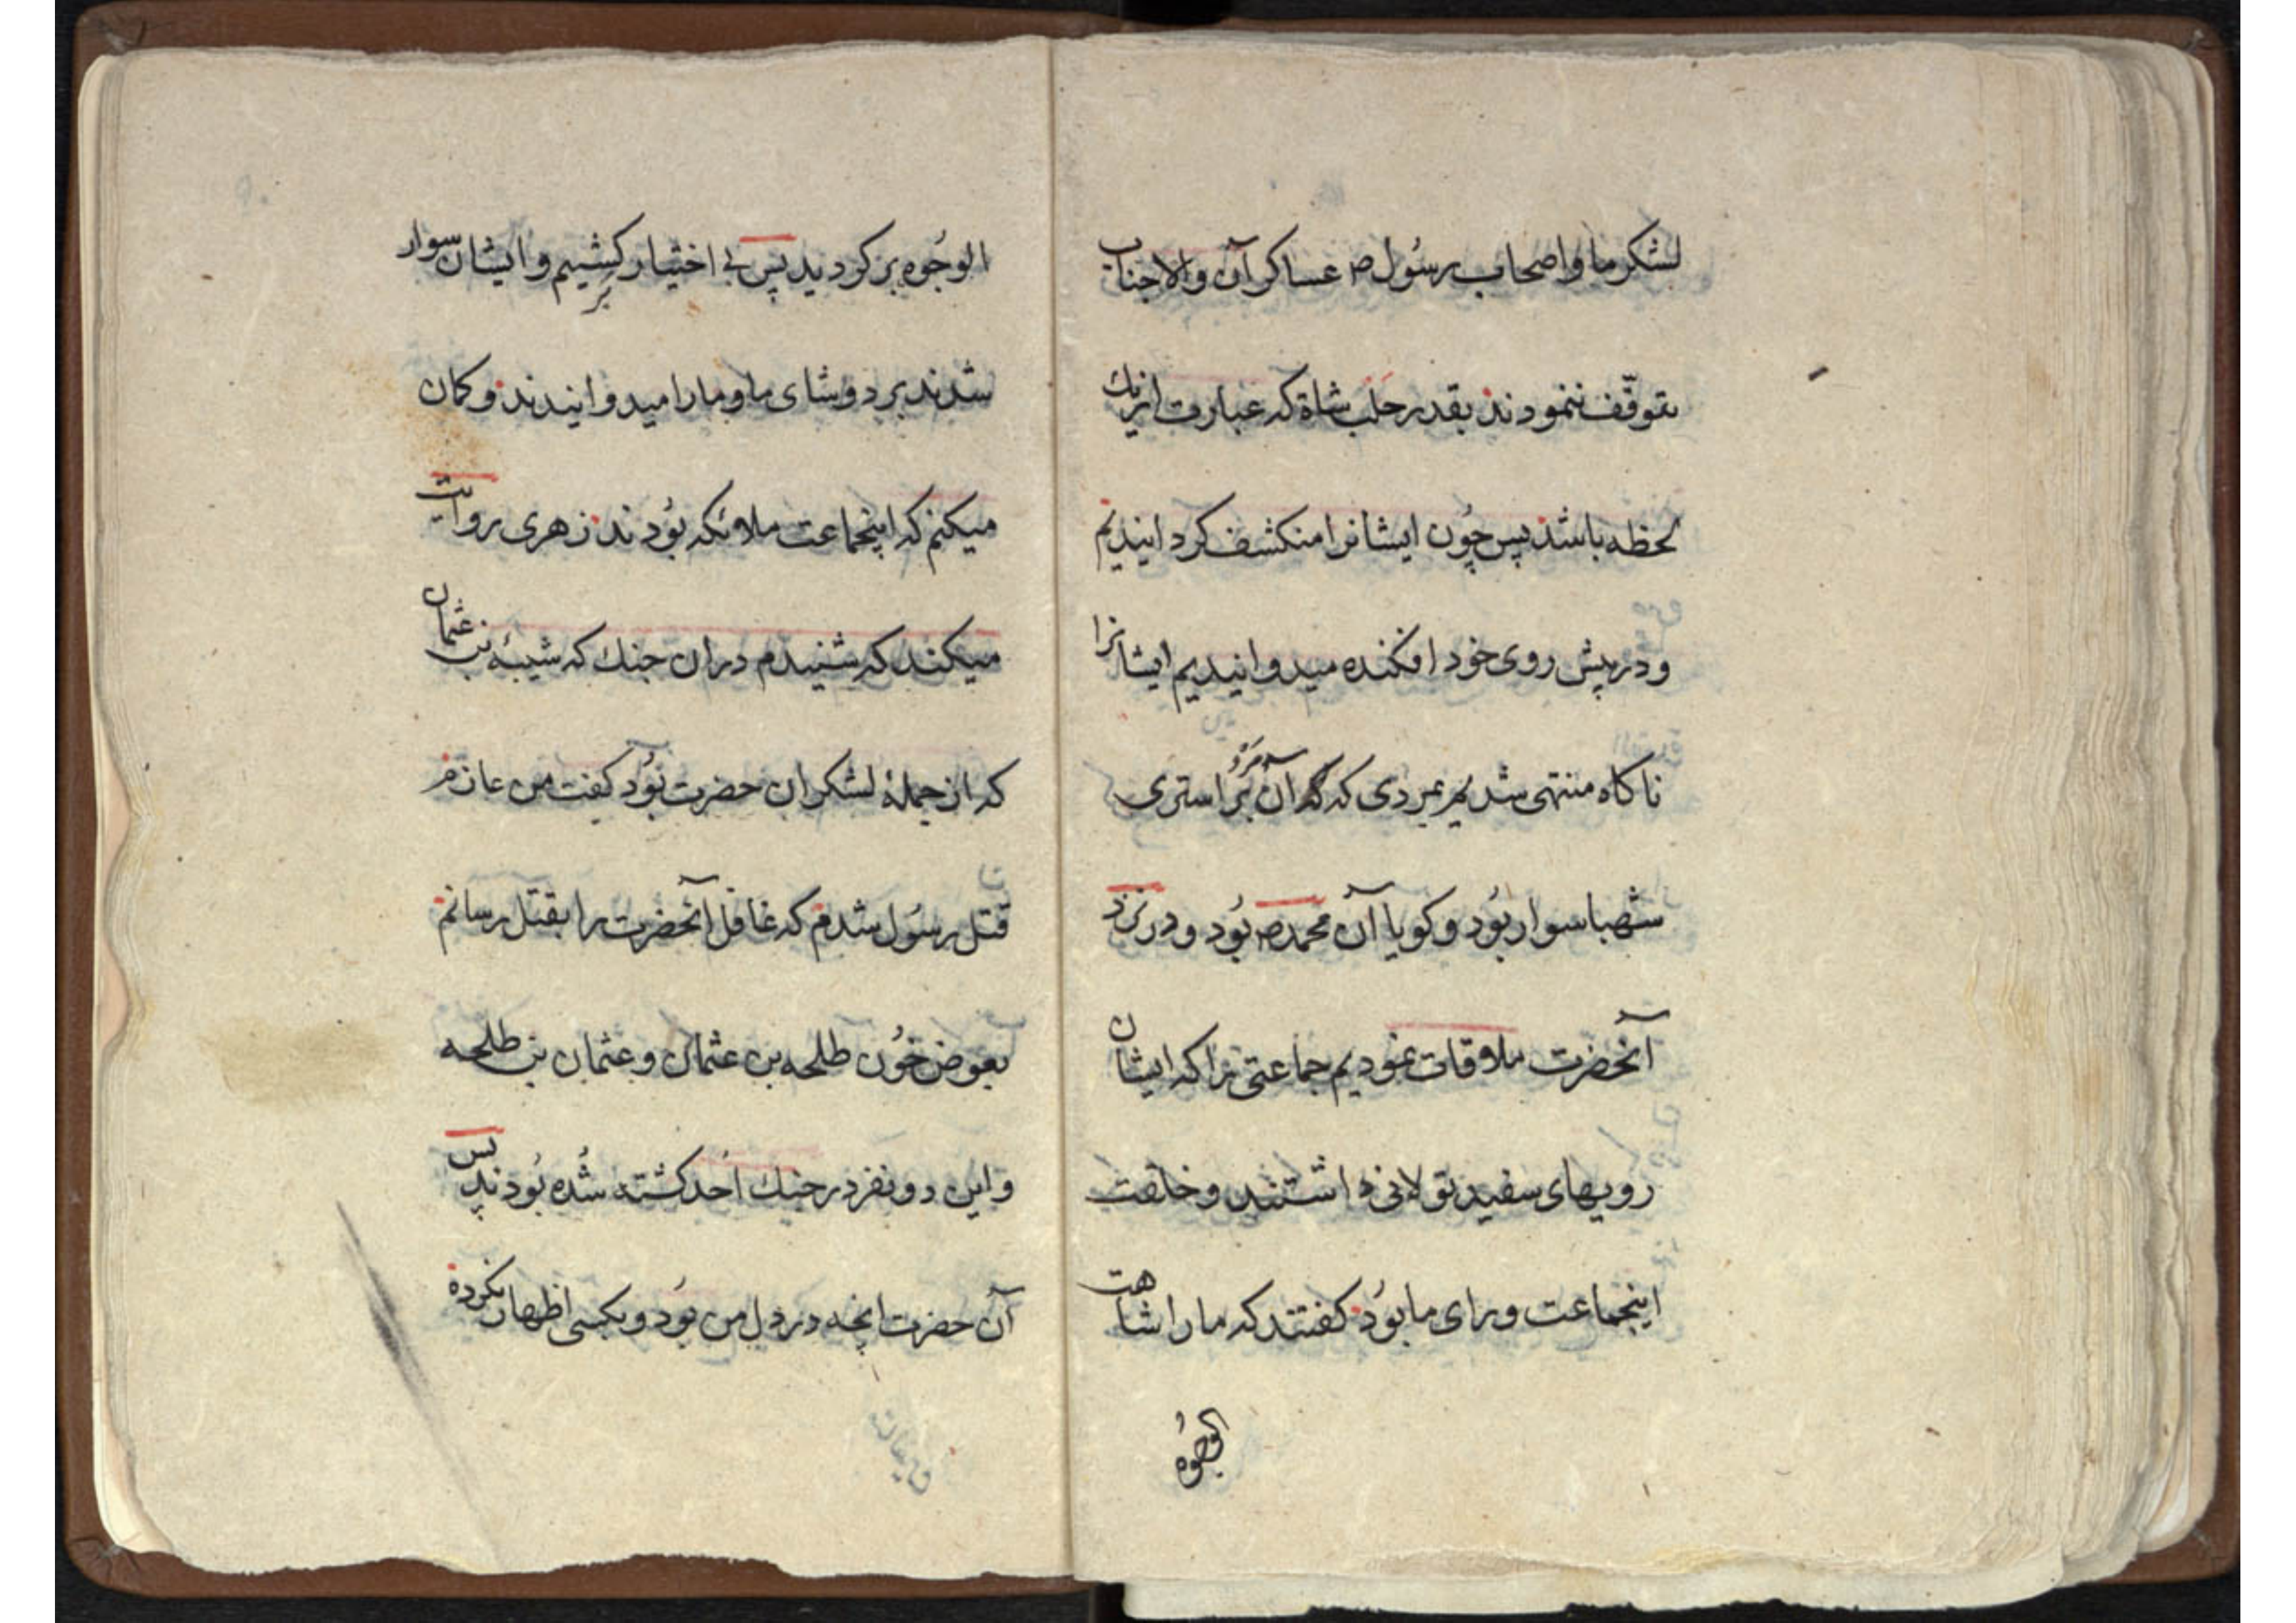 لشکر ما و اصحاب رسُول ص عساکر آن والاجناب
توقّف ننمودند بقدر حلب شاة که عبارت از یك
لحظه باشد پس چُون ایشانرا منکشف کردانیدیم
و در پیش روی خود افکنده میدوانیدیم ایشانرا
ناکاه منتهی شدیم بمردی که آن مرد بَر استری
شهبا سوار بُود و کویا آن محمد ص بُود و در نزد
آنحضرت ملاقات نمودیم جماعتی را که ایشان
رویهای سفید نورانی داشتند و خلقت
اینجماعت ورای ما بُود کفتند که ما را شاهت
الوجُوه
الوجُوه برکردید پس بی اختیار برکشتیم و ایشان سوار
شدند بر دوشای ما و ما را میدوانیدند و کمان
میکنم که اینجماعت ملائکه بُودند زهری روایت
میکند که شنیدم در ان جنك که شیبۀ بن عثمان
که از جملۀ لشکران حضرت بُود کفت من عازم
قتل رسُول شدم که غافل آنحضرت را بقتل رسانم
بعوض خُون طلحه بن عثمان و عثمان بن طلحه
و این دو نفر در جنك اُحد کشته شُده بُودند پس
آن حضرت انچه در دل من بُود و بکسی اظهار نکرده